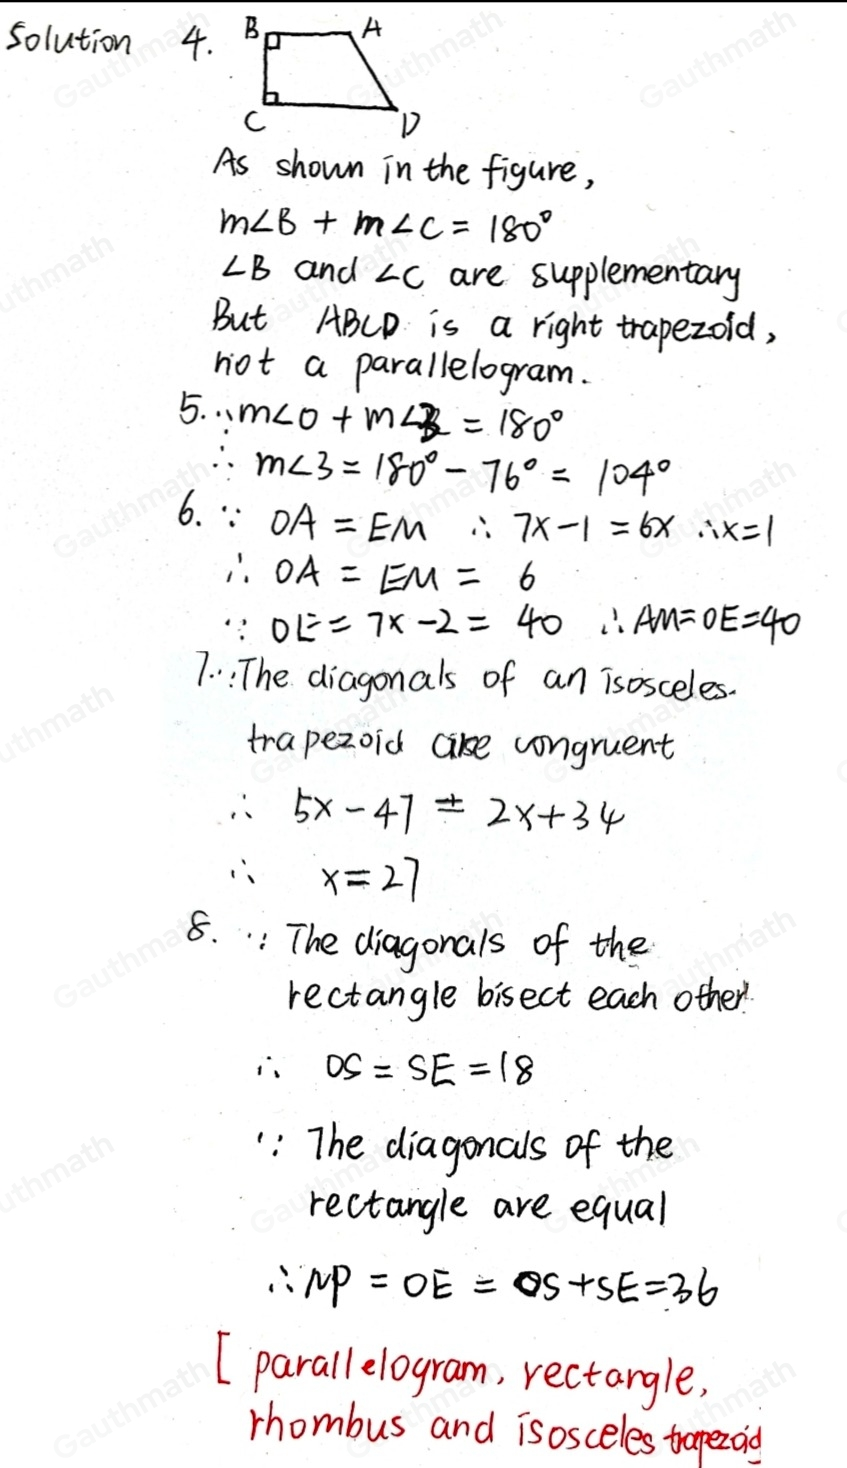 Solution 4. B A
C D
As shown in the figure,
m∠B + m∠C = 180°
∠B and ∠C are supplementary
But ABCD is a right trapezoid,
not a parallelogram.
5. ∵ m∠O + m∠3 = 180°
∴ m∠3 = 180° - 76° = 104°
6. ∵ OA = EM ∴ 7x-1 = 6x ∴x=1
∴ OA = EM = 6
∵ OE = 7x-2 = 40 ∴ AM=OE=40
7.∵The diagonals of an isosceles
trapezoid are congruent
∴ 5x-47 = 2x+34
∴ x=27
8. ∵ The diagonals of the
rectangle bisect each other
∴ OS = SE = 18
∵ The diagonals of the
rectangle are equal
∴ NP = OE = OS+SE=36
[ parallelogram, rectangle,
rhombus and isosceles trapezoid